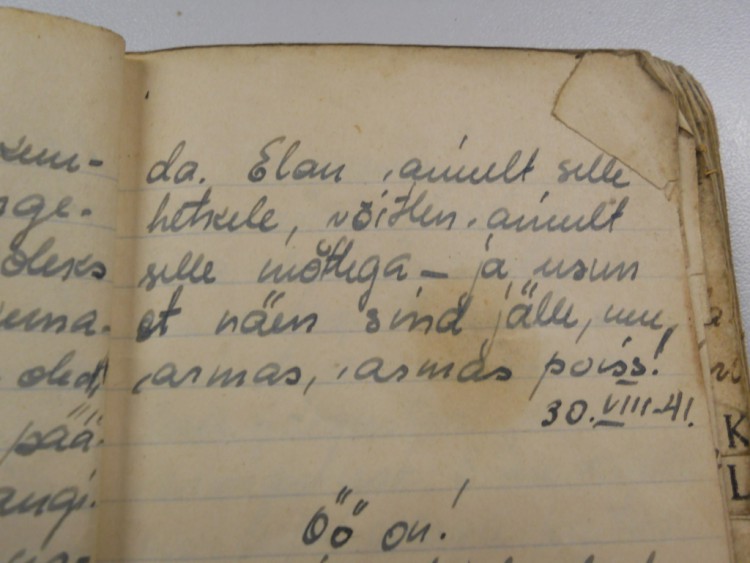 da. Elan ainult selle
hetkele, võitlen ainult
selle mõttega – ja usun
et näen sind jälle, mu
armas, armas poiss!
30.VIII-41.
Öö on!
oleks
oled
pää-
angi-
K
L